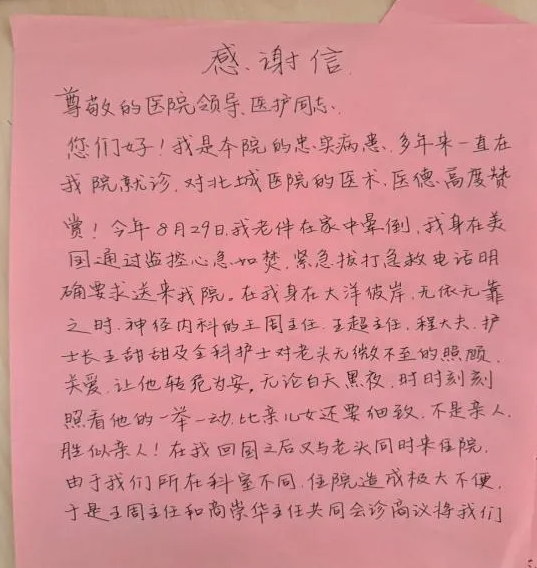 感谢信
尊敬的医院领导、医护同志、
您们好！我是本院的忠实病患、多年来一直在
我院就诊、对北城医院的医术、医德、高度赞
赏！今年8月29日、我老伴在家中晕倒、我身在美
国通过监控心急如焚、紧急拔打急救电话明
确要求送来我院。在我身在大洋彼岸、无依无靠
之时、神经内科的王周主任、王超主任、程大夫、护
士长王甜甜及全科护士对老头无微不至的照顾、
关爱、让他转危为安。无论白天黑夜、时时刻刻
照看他的一举一动、比亲儿女还要细致、不是亲人、
胜似亲人！在我回国之后又与老头同时来住院、
由于我们所在科室不同、住院造成极大不便、
于是王周主任和高崇华主任共同会诊商议将我们